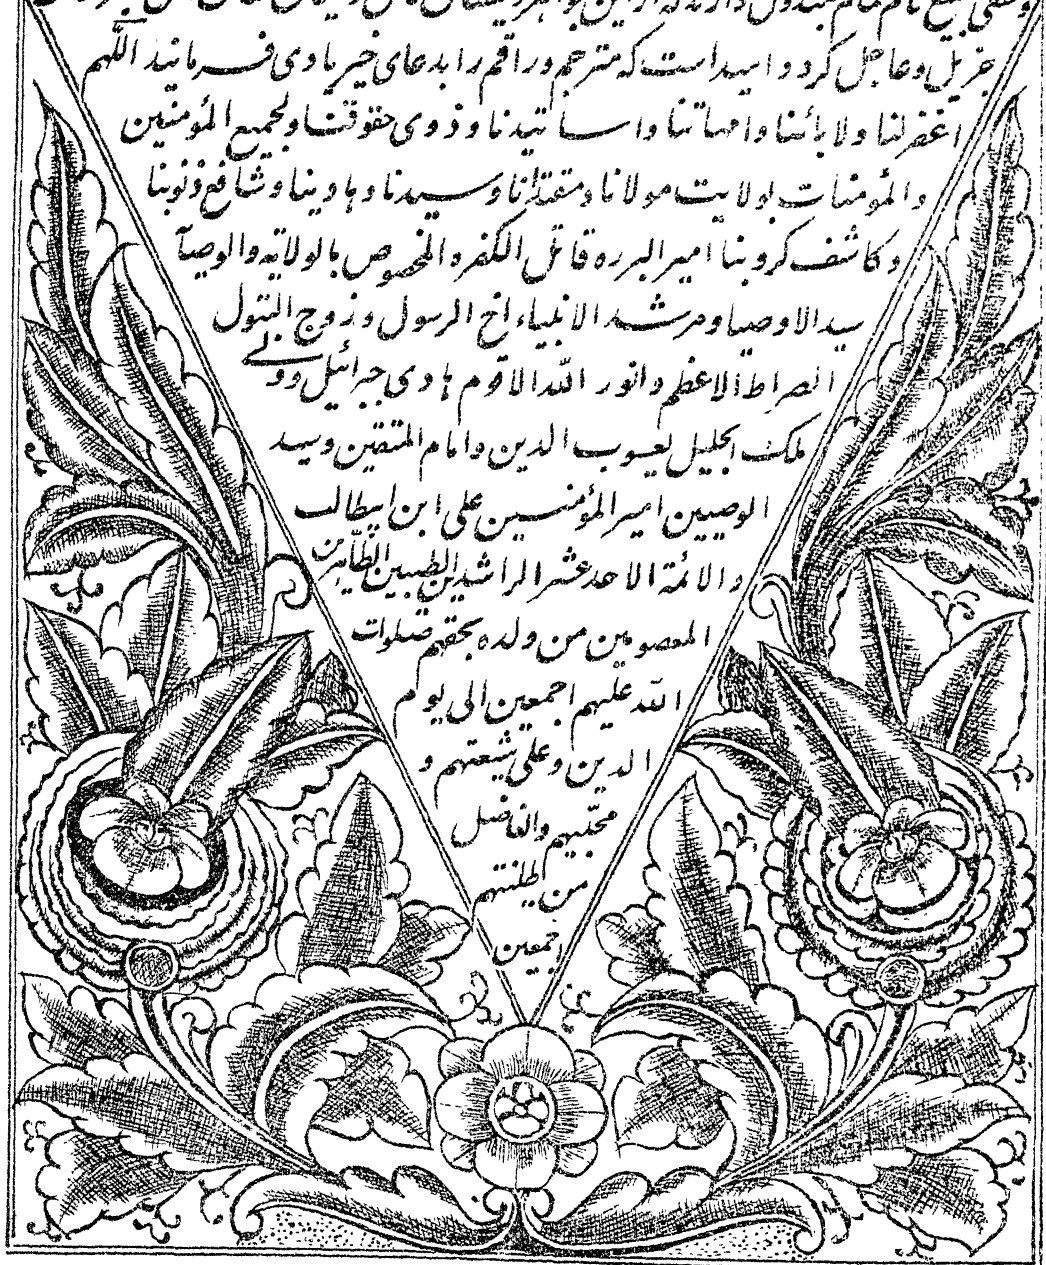 جزیل و عاجل کرد و امید است که مترجم و راقم را بدعای خیر یادی فرمایند اللّهم
اغفرلنا ولابائنا وامهاتنا واساتیدنا وذوی حقوقنا ولجمیع المؤمنین
والمؤمنات بولایت مولانا ومقتدانا وسیدنا وهادینا وشافع ذنوبنا
وکاشف کروبنا امیر البرره قاتل الکفره المخصوص بالولایه والوصیآ
سید الاوصیا ومرشد الانبیاء اخ الرسول وزوج البتول
الصراط الاعظم وانور اللّه الاقوم هادی جبرائیل و
ملک الجلیل یعسوب الدین وامام المتقین وسید
الوصیین امیر المؤمنین علی ابن ابیطالب
والائمة الاحد عشر الراشدین الطیبین الطّاهرین
المعصومین من ولده بحقهم صلوات
اللّه علیهم اجمعین الی یوم
الدین وعلی شیعتهم و
محبّیهم والفاضل
من طینتهم
اجمعین